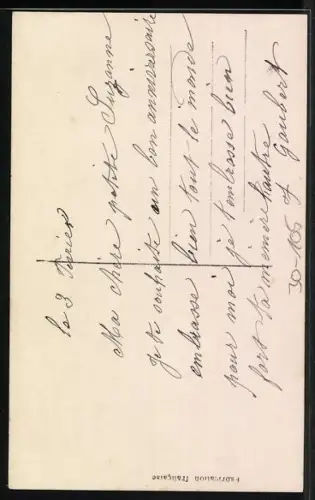 le 3 Février
Ma chère petite Suzanne
je te souhaite un bon anniversaire
embrasse bien tout le monde
pour moi je t'embrasse bien
fort ta mémère
J. Gaubert
30-106
Fabrication française